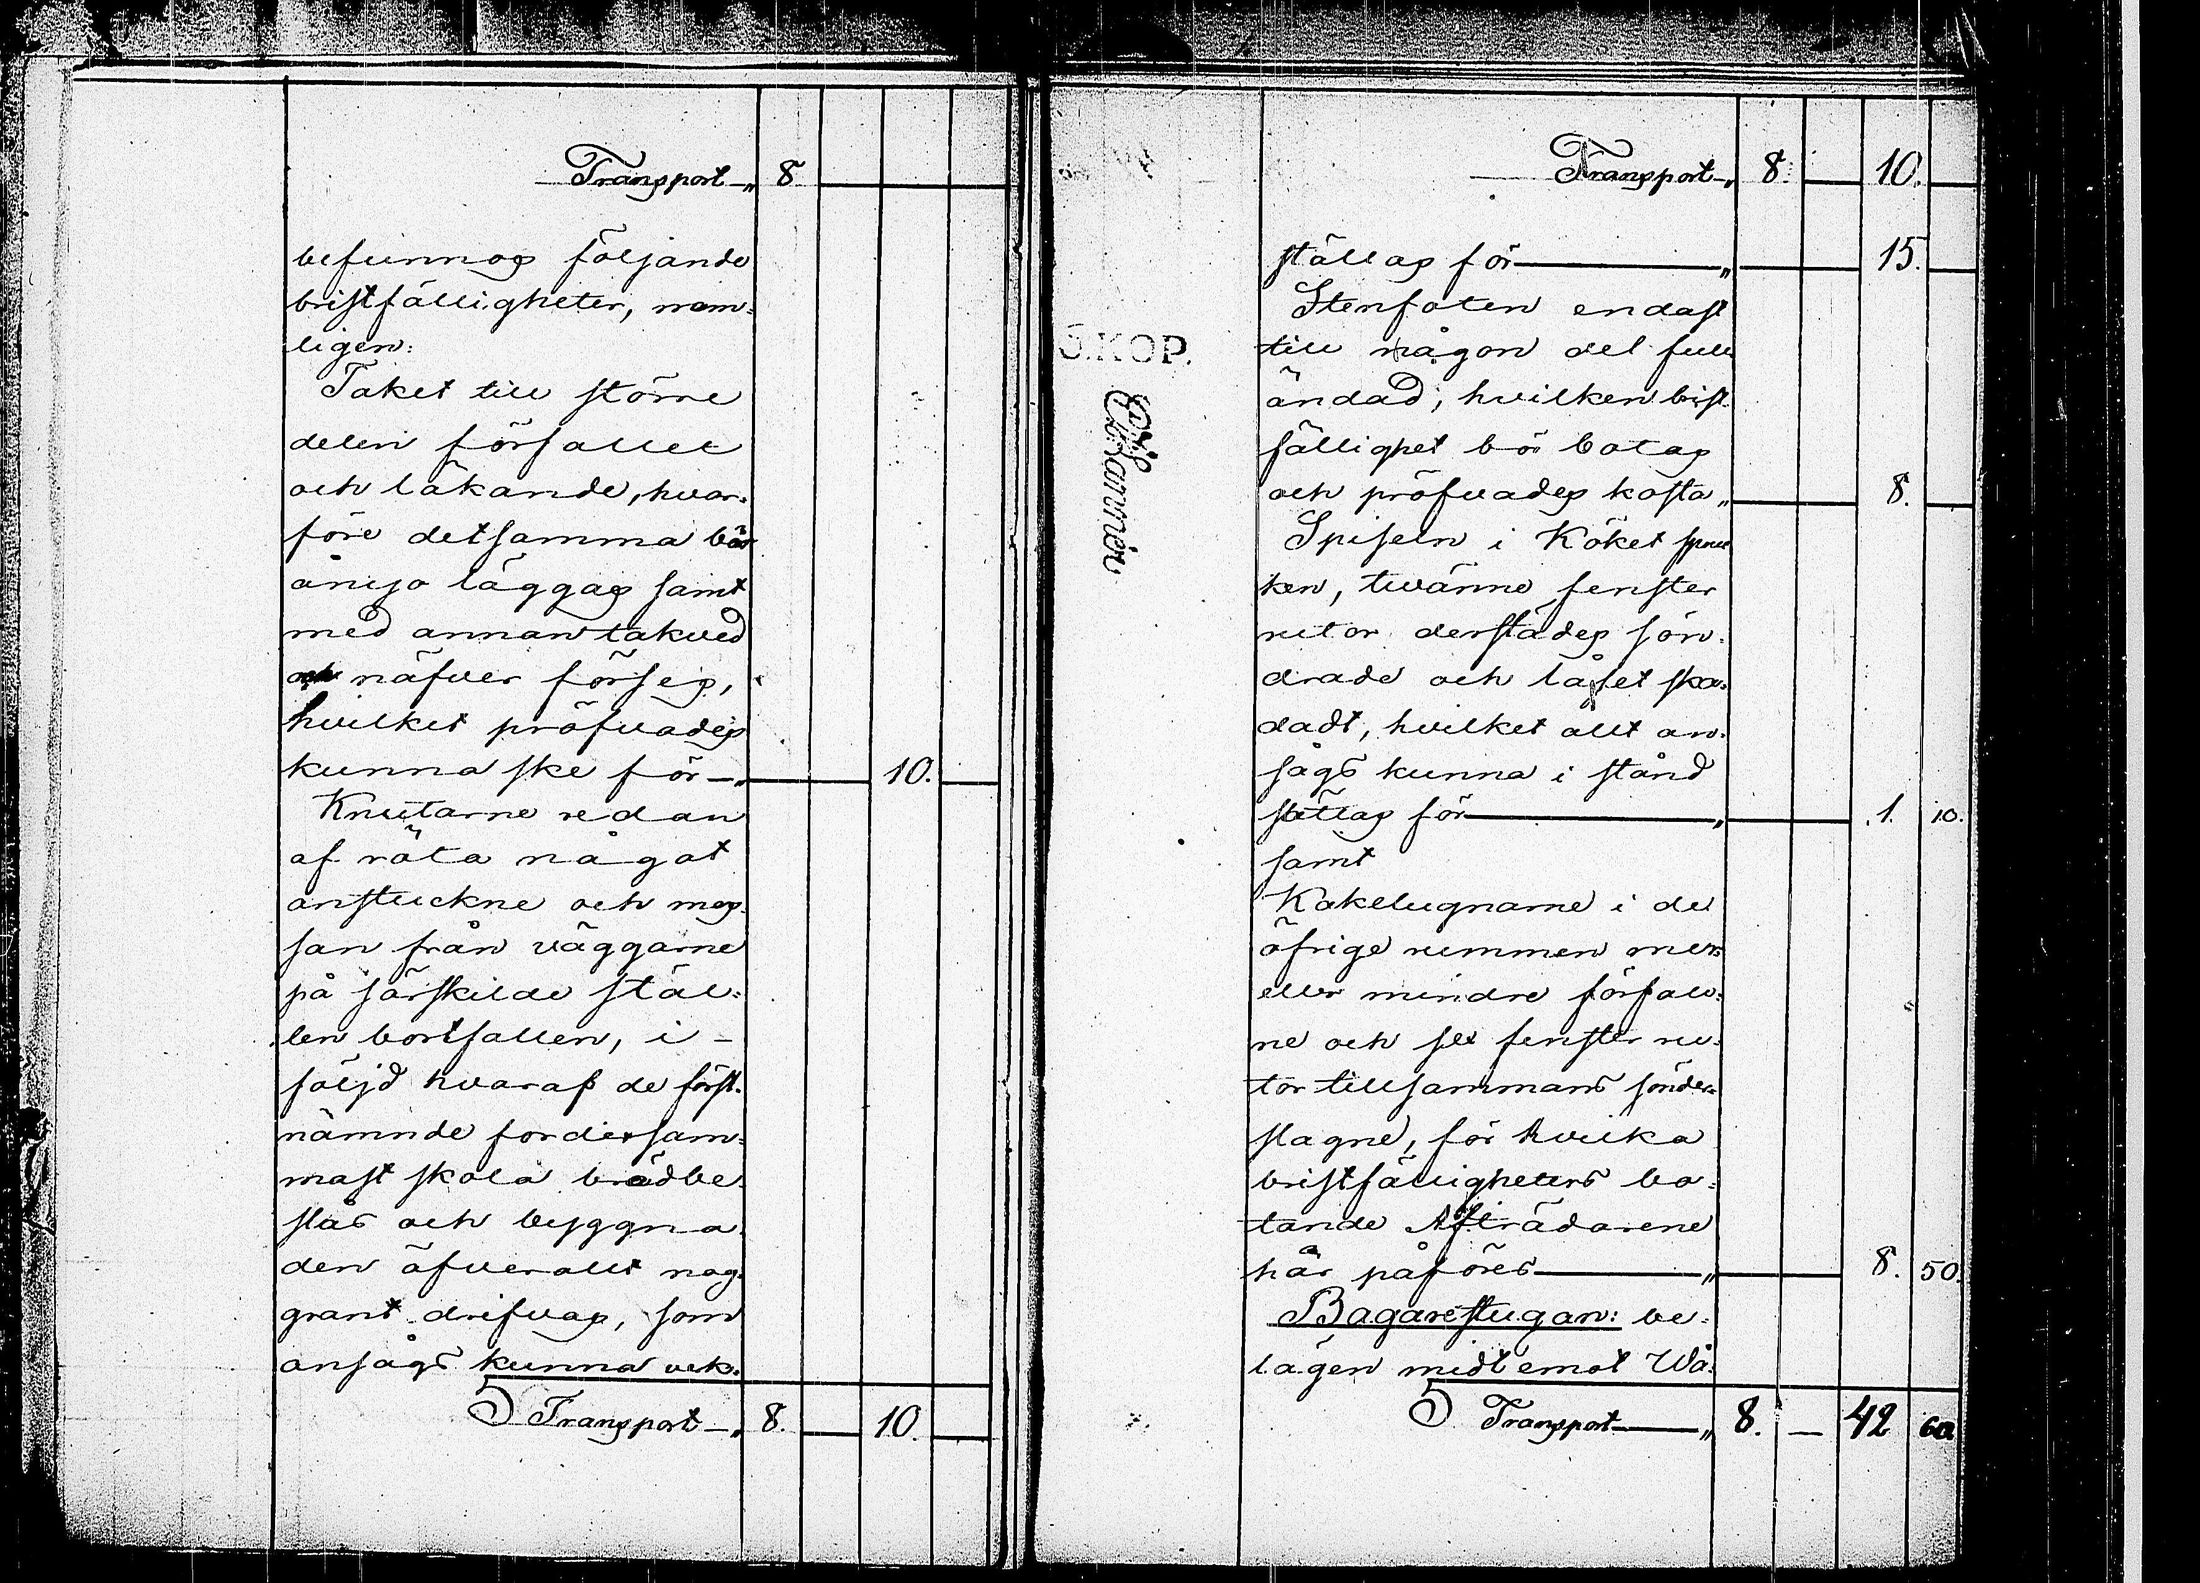 Transport „ 8. — —
befunnos följande
bristfälligheter, nem-
ligen:
Taket till större
delen förfallet
och läkande, hvar-
före detsamma bör
ånyo läggas samt
med annan takved
och näfver förses,
hvilket pröfvades
kunna ske för — „ — 10. —
Knutarne redan
af röta något
anstuckne och mos-
san från väggarne
på särskilde stäl-
len bortfallen, i
följd hvaraf de först-
nämnde fordersam-
mast skola brädbe-
slås och byggna-
den öfverallt nog-
grant drifvas, som
ansågs kunna verk-
Transport — „ 8. — 10. —
Transport — „ 8. — 10. —
ställas för — „ — 15. —
Stenfoten endast
till någon del full-
ändad; hvilken brist-
fällighet bör botas
och pröfvades kosta „ — 8. —
Spiseln i Köket spruc-
ken, tvänne fenster
rutor derstädes sön-
drade och låset ska-
dadt, hvilket allt an-
sågs kunna i stånd
sättas för — „ — 1. 10.
samt
Kakelugnarne i de
öfrige rummen mer
eller mindre förfall-
ne och sex fenster ru-
tor tillsammans sönder-
slagne, för hvilka
bristfälligheters bo-
tande Afträdarene
här påföres — „ — 8. 50.
Bagarestugan: be-
lägen midt emot Wå-
Transport — „ 8. — 42 60
S.KOP.